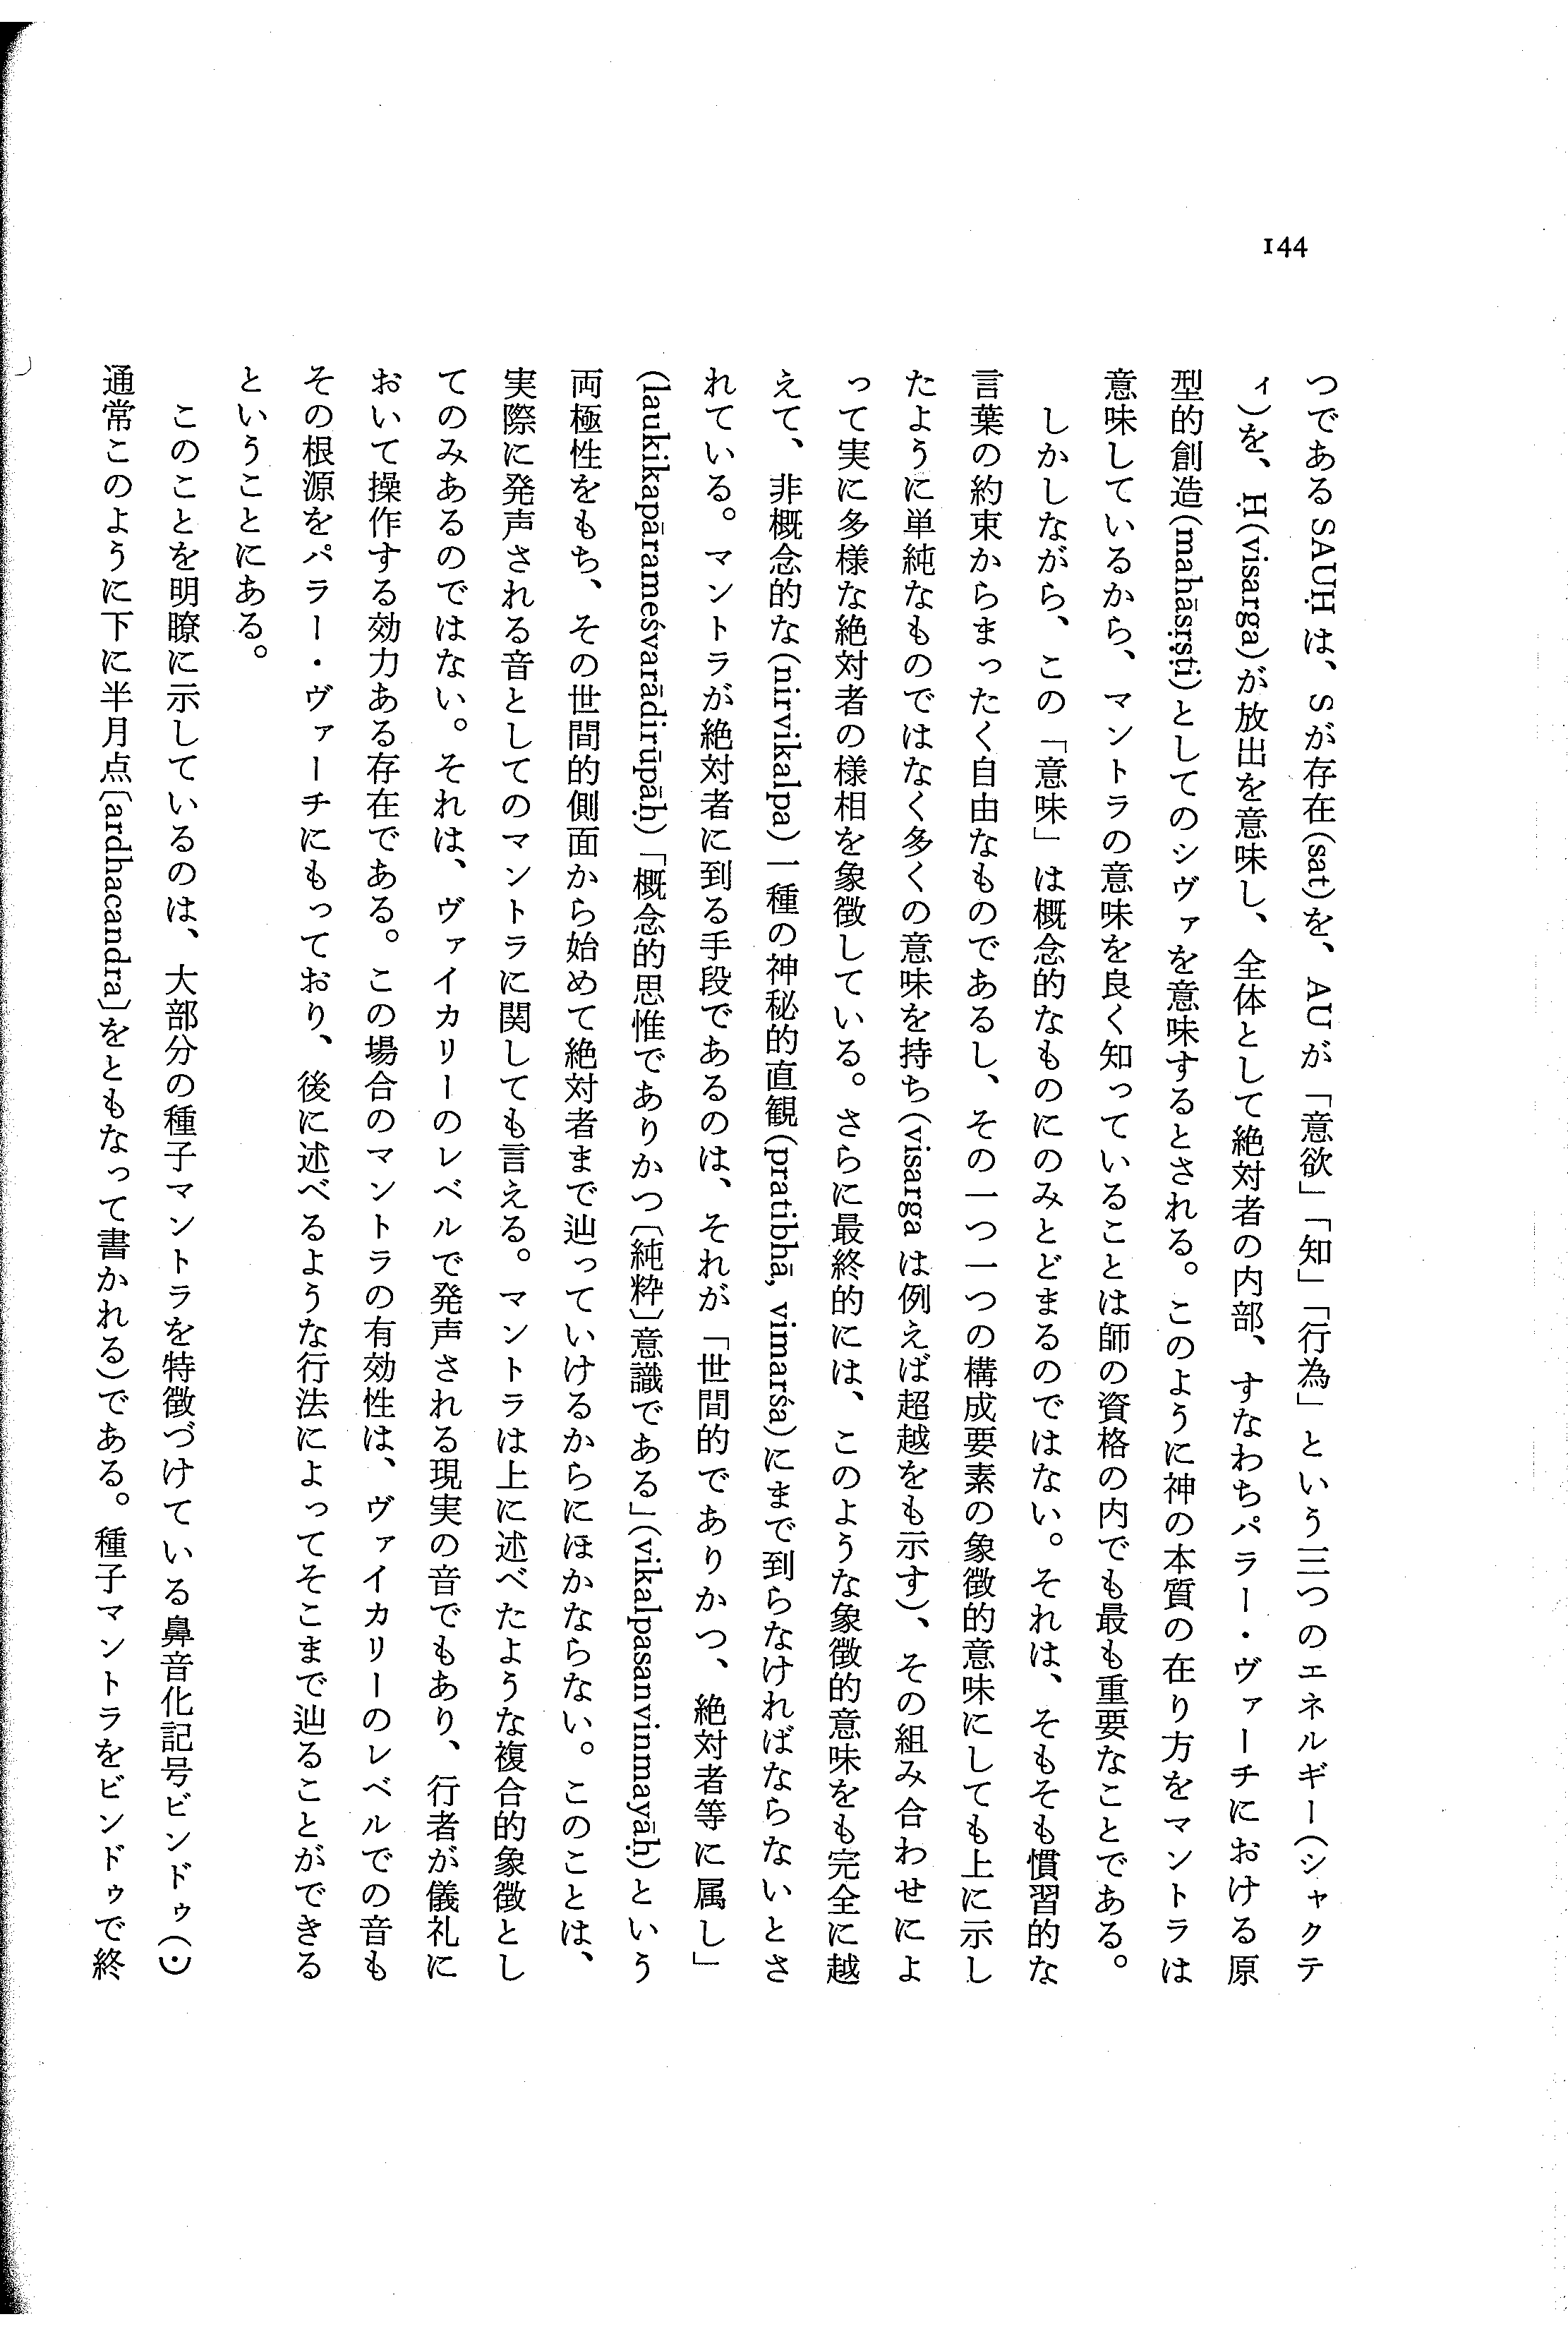 144
つである SAUḤ は、Sが存在(sat)を、AUが「意欲」「知」「行為」という三つのエネルギー(シャクテ
ィ)を、Ḥ(visarga)が放出を意味し、全体として絶対者の内部、すなわちパラー・ヴァーチにおける原
型的創造(mahāsṛṣṭi)としてのシヴァを意味するとされる。このように神の本質の在り方をマントラは
意味しているから、マントラの意味を良く知っていることは師の資格の内でも最も重要なことである。
しかしながら、この「意味」は概念的なものにのみとどまるのではない。それは、そもそも慣習的な
言葉の約束からまったく自由なものであるし、その一つ一つの構成要素の象徴的意味にしても上に示し
たように単純なものではなく多くの意味を持ち(visarga は例えば超越をも示す)、その組み合わせによ
って実に多様な絶対者の様相を象徴している。さらに最終的には、このような象徴的意味をも完全に越
えて、非概念的な(nirvikalpa)一種の神秘的直観(pratibhā, vimarśa)にまで到らなければならないとさ
れている。マントラが絶対者に到る手段であるのは、それが「世間的でありかつ、絶対者等に属し」
(laukikapārameśvarādirūpāḥ)「概念的思惟でありかつ〔純粋〕意識である」(vikalpasanvinmayāḥ)という
両極性をもち、その世間的側面から始めて絶対者まで辿っていけるからにほかならない。このことは、
実際に発声される音としてのマントラに関しても言える。マントラは上に述べたような複合的象徴とし
てのみあるのではない。それは、ヴァイカリーのレベルで発声される現実の音でもあり、行者が儀礼に
おいて操作する効力ある存在である。この場合のマントラの有効性は、ヴァイカリーのレベルでの音も
その根源をパラー・ヴァーチにもっており、後に述べるような行法によってそこまで辿ることができる
ということにある。
このことを明瞭に示しているのは、大部分の種子マントラを特徴づけている鼻音化記号ビンドゥ(◡̇)
通常このように下に半月点〔ardhacandra〕をともなって書かれる)である。種子マントラをビンドゥで終